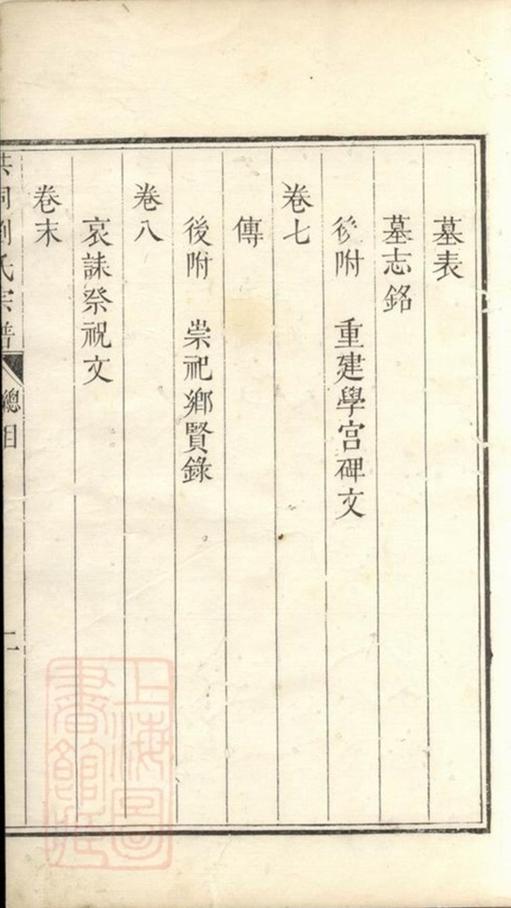 墓表
墓志銘
後附　重建學宮碑文
卷七
傳
後附　崇祀鄉賢錄
卷八
哀誄祭祝文
卷末
洪洞劉氏宗譜　總目　二
上海圖書館藏